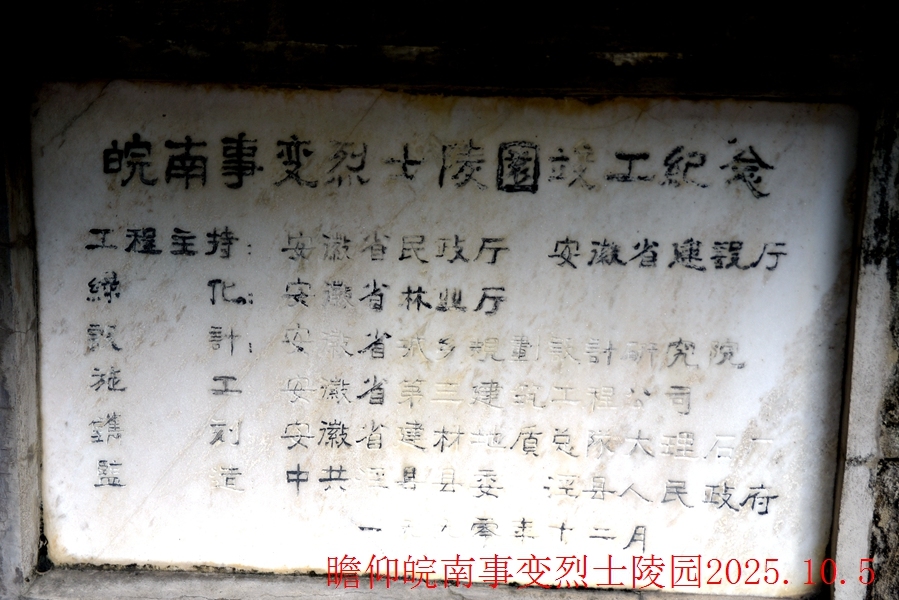 皖南事变烈士陵園竣工紀念
工程主持：安徽省民政厅 安徽省建設厅
綠化：安徽省林业厅
設計：安徽省城乡規劃設計研究院
施工 安徽省第三建筑工程公司
鐫刻 安徽省建材地质总隊大理石厂
監造 中共泾县县委 泾县人民政府
一九九零年十二月
瞻仰皖南事变烈士陵园2025.10.5